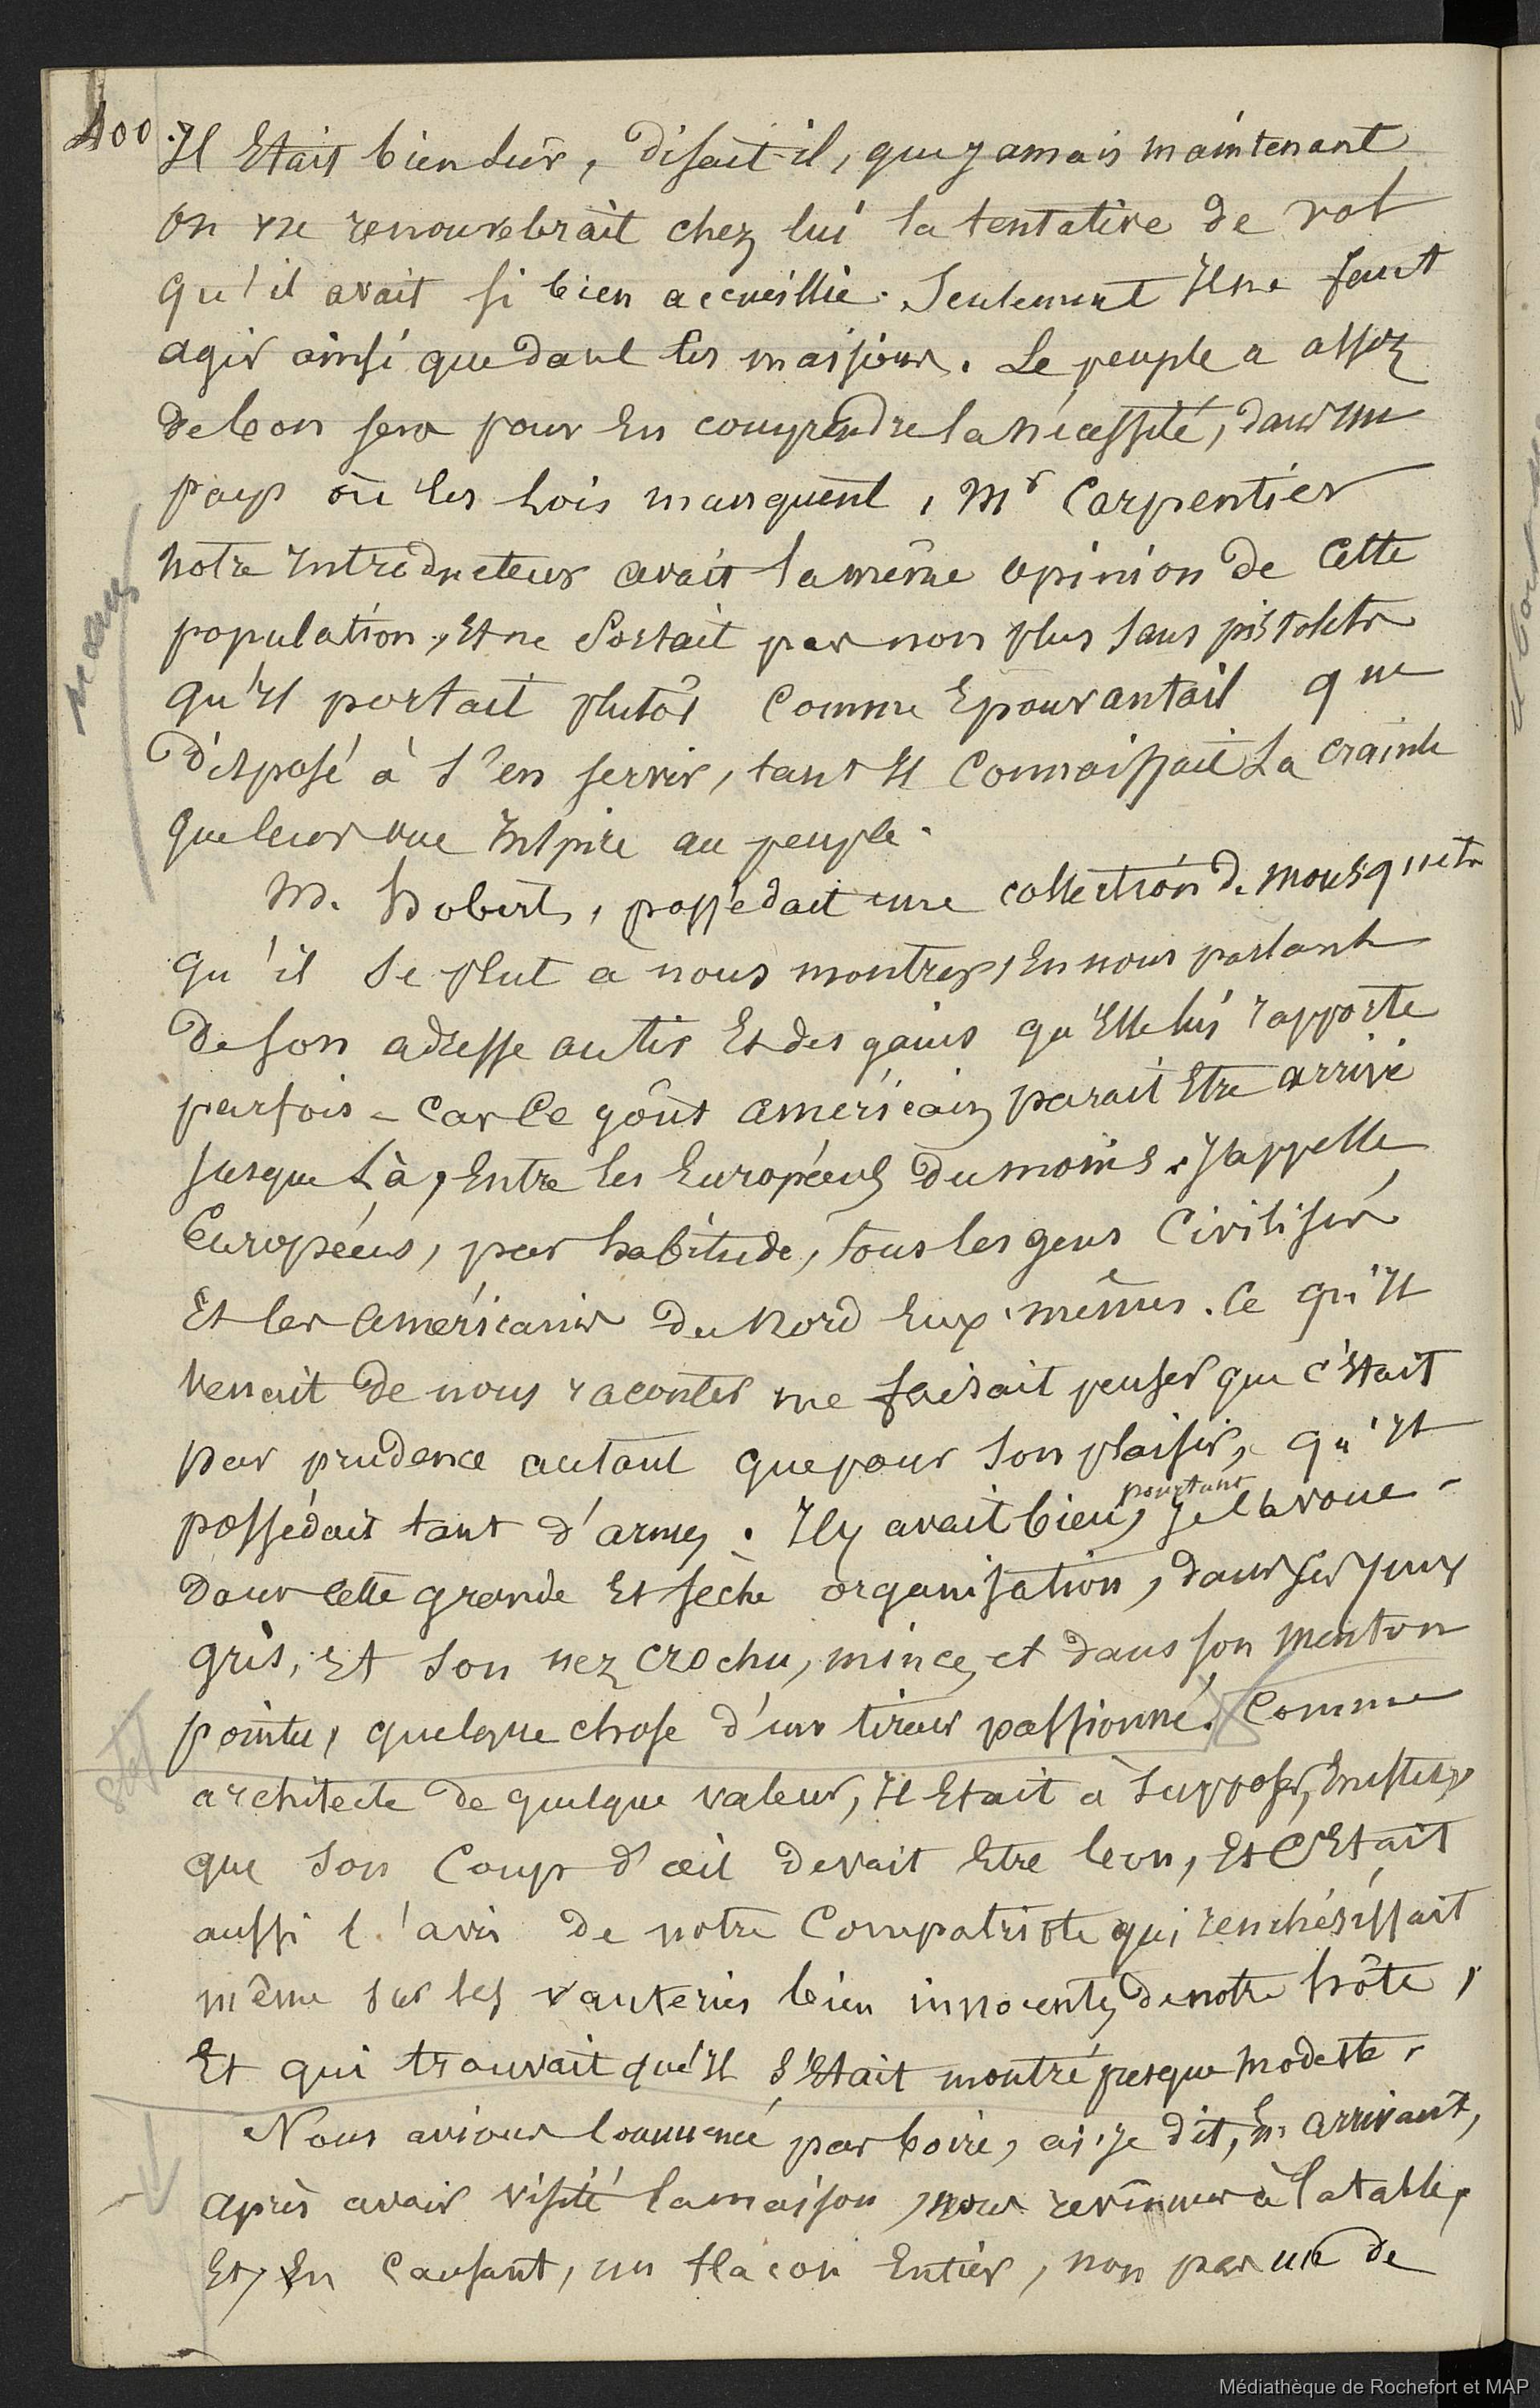 400
Il Etait bien sûr, disait-il, que jamais maintenant
on ne renouvelerait chez lui la tentative de vol
qu'il avait si bien accueillie. Seulement Il ne faut
agir ainsi que dans les maisons. Le peuple a assez
de bon sens pour En comprendre la nécessité, dans un
pays où les Lois manquent, Mr Carpentier
notre Introducteur avait la même opinion de cette
population, Et ne Sortait pas non plus sans pistolets
qu'Il portait plutôt Comme Epouvantail que
disposé à s'en servir, tant Il Connaissait La crainte
que leur vue Inspire au peuple.
M. Hobert, possédait une collection de mousquets
qu'il se plut à nous montrer, En nous parlant
de son adresse au tir Et des gains qu'Elle lui rapporte
parfois - Car le goût américain parait Etre arrivé
Jusque Là, Entre les Européens du moins. J'appelle
Européens, par habitude, tous les gens Civilisés
Et les Américains du Nord Eux-mêmes. Ce qu'Il
venait de nous raconter me faisait penser que c'Etait
par prudence autant que pour son plaisir, qu'Il
possédait tant d'armes. Il y avait bien, pourtant Je l'avoue -
dans Cette grande Et sèche organisation, dans ses yeux
gris, Et son nez crochu, mince, et dans son menton
pointu, quelque chose d'un tireur passionné. Comme
architecte de quelque valeur, Il Etait à supposer,
que son Coup d'œil devait Etre bon, Et C'Etait
aussi l'avis de notre Compatriote qui renchérissait
même sur les vanteries bien innocentes de notre hôte,
Et qui trouvait qu'Il s'Etait montré presque modeste.
Nous avions Commencé par boire, ai-je dit, En arrivant,
après avoir visité la maison, nous revînmes à la table,
Et, En Causant, un flacon Entier, non pas un de
Médiathèque de Rochefort et MAP